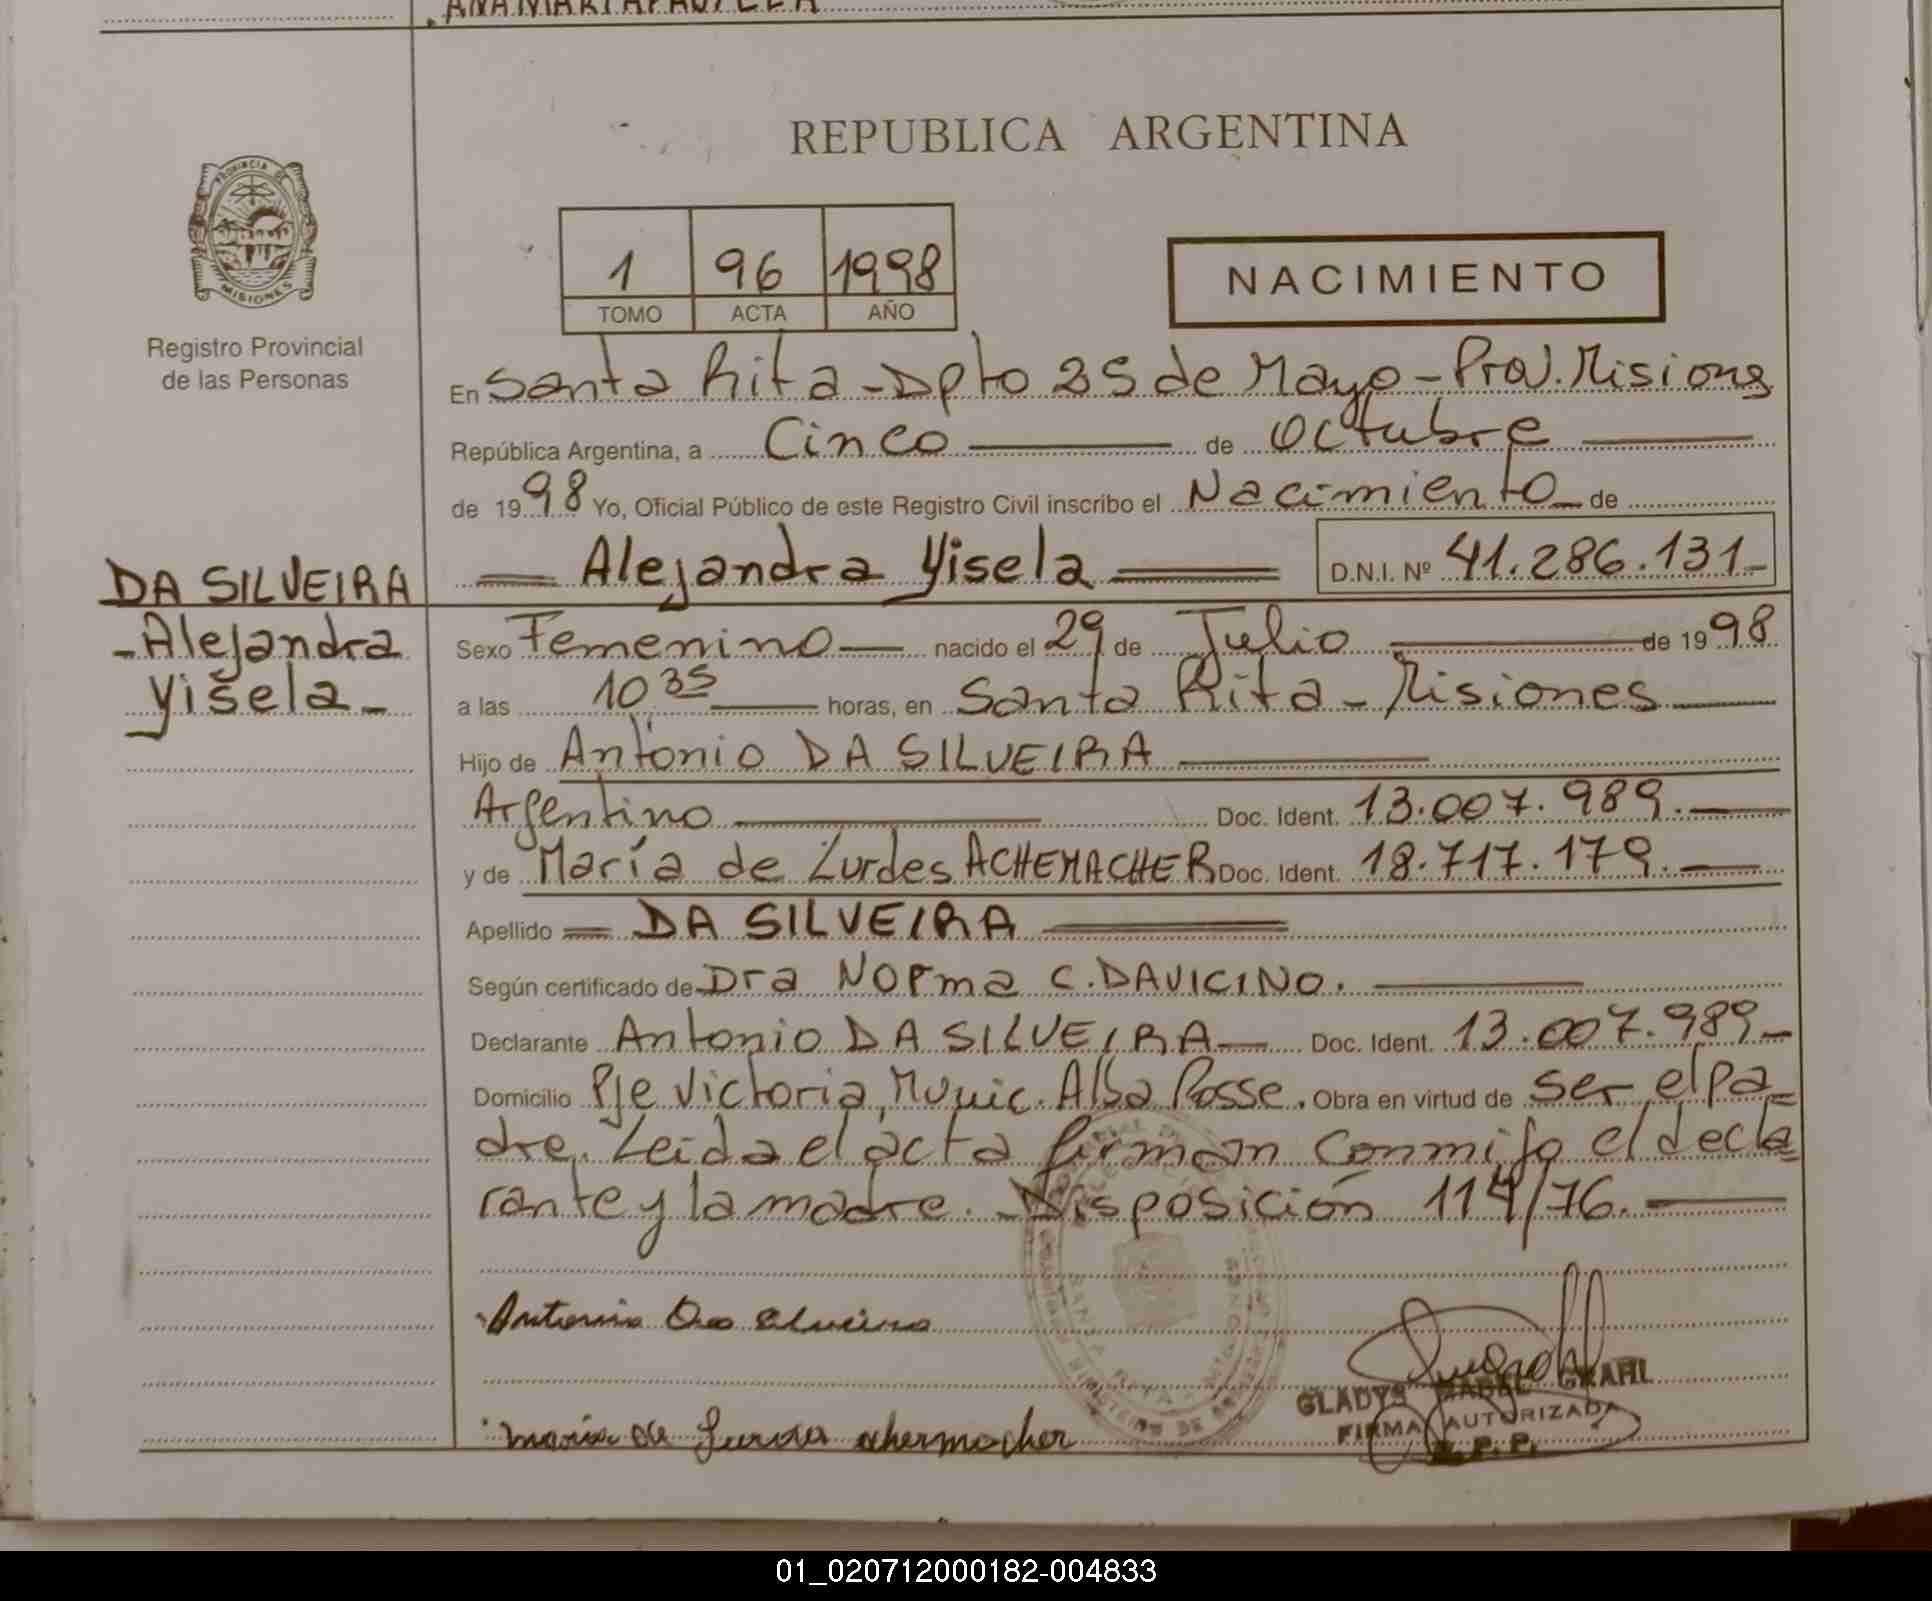 ANA MARIA PAO
REPUBLICA ARGENTINA
PROVINCIA DE
MISIONES
1 96 1998
TOMO ACTA AÑO
NACIMIENTO
Registro Provincial
de las Personas
En Santa Rita - Dpto 25 de Mayo - Prov. Misiones
República Argentina, a Cinco de Octubre
de 1998 Yo, Oficial Público de este Registro Civil inscribo el Nacimiento de
Alejandra Yisela D.N.I. Nº 41.286.131
DA SILVEIRA
- Alejandra
Yisela -
Sexo Femenino nacido el 29 de Julio de 1998
a las 10 35 horas, en Santa Rita - Misiones
Hijo de Antonio DA SILVEIRA
Argentino Doc. Ident. 13.007.989.
y de María de Lurdes ACHEMACHER Doc. Ident. 18.717.179.
Apellido DA SILVEIRA
Según certificado de Dra Norma C. DAVICINO.
Declarante Antonio DA SILVEIRA Doc. Ident. 13.007.989
Domicilio Pje Victoria, Munic. Alba Posse. Obra en virtud de ser el pa=
dre. Leida el acta firman conmigo el decla=
rante y la madre. - Disposición 114/76.
Antonio Da Silveira
María de Lurdes Achermacher
GLADYS MABEL GRAHL
FIRMA AUTORIZADA
R.P.P.
01_020712000182-004833